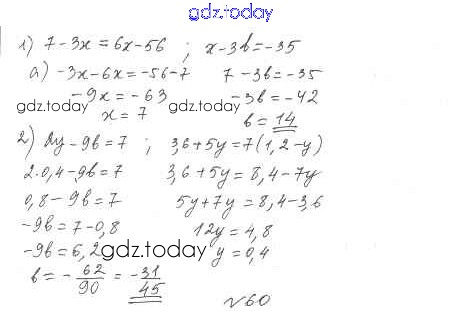 gdz.today
1) 7-3x = 6x-56 ; x-3b=-35
a) -3x-6x=-56-7 7-3b=-35
gdz.today -9x=-63 gdz.today -3b=-42
x=7 b=14
2) 2y-9b=7 ; 3,6+5y=7(1,2-y)
2·0,4-9b=7 3,6+5y=8,4-7y
0,8-9b=7 5y+7y=8,4-3,6
-9b=7-0,8 12y=4,8
-9b=6,2 gdz.today y=0,4
b=-62/90=-31/45
№60